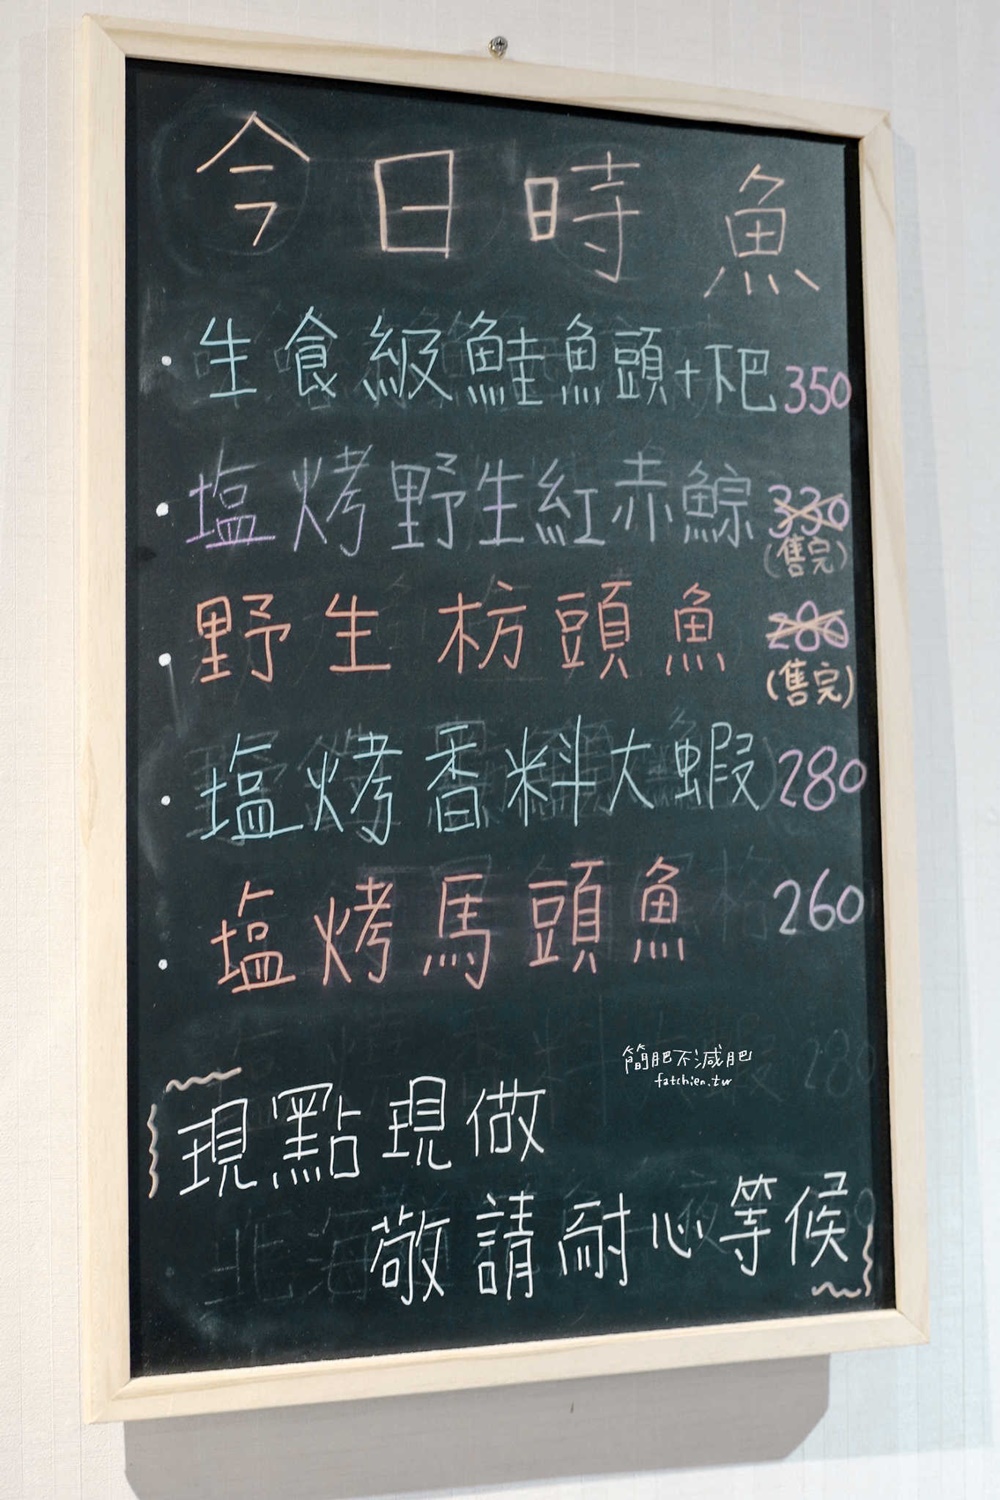 今日時魚
• 生食級鮭魚頭+下巴 350
• 塩烤野生紅赤鯮 330
(售完)
• 野生枋頭魚 280
(售完)
• 塩烤香料大蝦 280
• 塩烤馬頭魚 260
簡肥不減肥
fatchien.tw
現點現做
敬請耐心等候